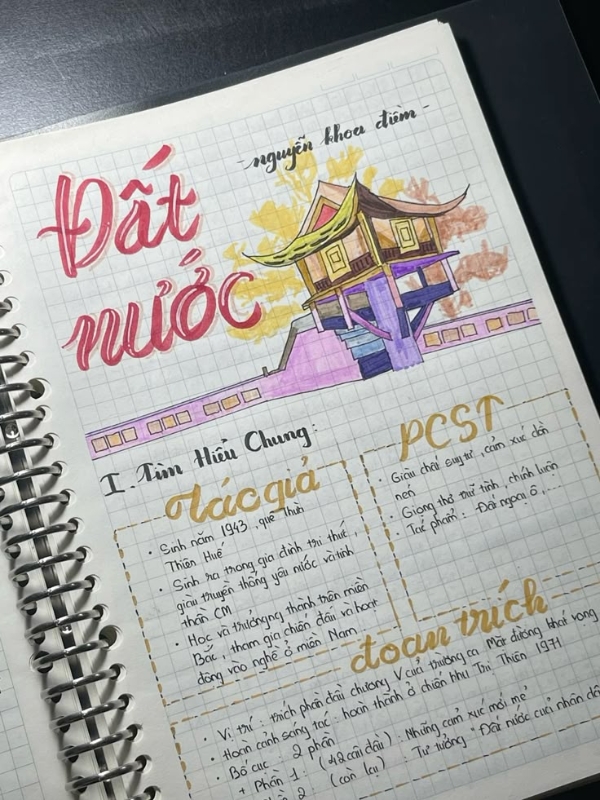 Đất
nước
- nguyễn khoa điềm -
I. Tìm Hiểu Chung:
Tác giả
• Sinh năm 1943, quê Thừa
Thiên Huế
• Sinh ra trong gia đình tri thức,
giàu truyền thống yêu nước và tinh
thần CM
• Học và trưởng thành trên miền
Bắc, tham gia chiến đấu và hoạt
động văn nghệ ở miền Nam
PCST
• Giàu chất suy tư, cảm xúc dồn
nén
• Giọng thơ trữ tình, chính luận
• Tác phẩm: Đất ngoại ô,...
đoạn trích
• Vị trí: trích phần đầu chương V của trường ca Mặt đường khát vọng
• Hoàn cảnh sáng tác: hoàn thành ở chiến khu Trị Thiên 1971
• Bố cục: 2 phần
+ Phần 1: (42 câu đầu): Những cảm xúc mới mẻ
2: (còn lại): Tư tưởng "Đất nước của nhân